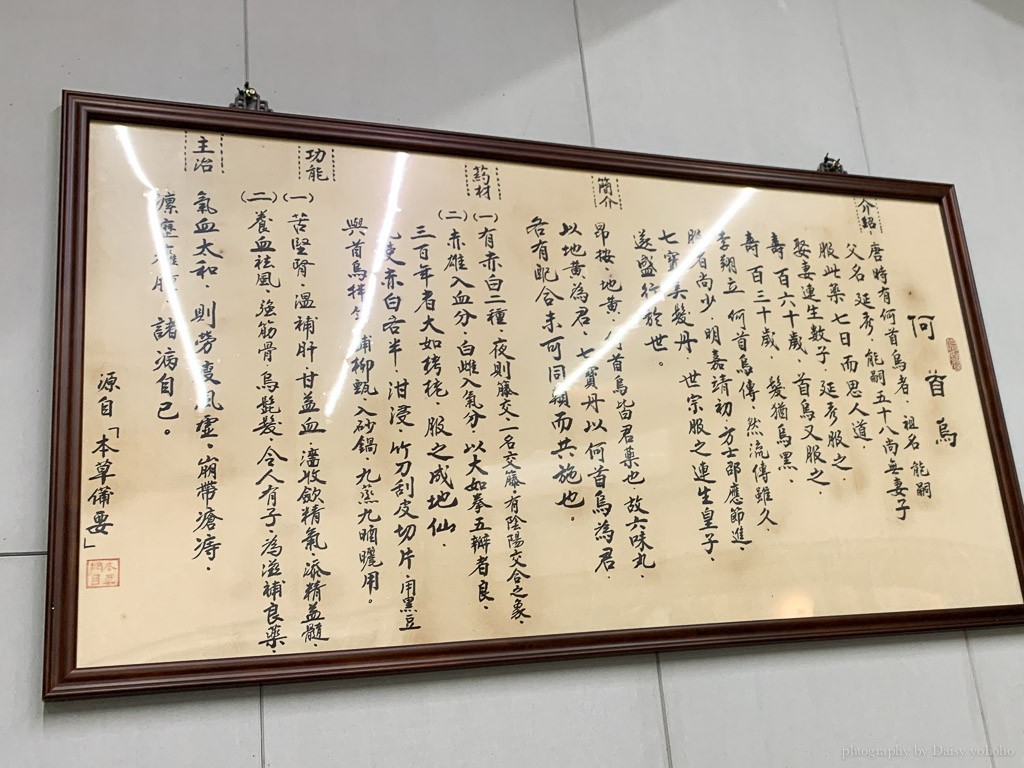 何首烏
介紹
唐時有何首烏者、祖名能嗣
父名延秀、能嗣五十八尚無妻子
服此藥七日而思人道、
娶妻連生數子、延秀服之、
壽百六十歲、首烏又服之、
壽百三十歲、髮猶烏黑、
李翔立何首烏傳、然流傳雖久、
服者尚少、明嘉靖初、方士邵應節進、
七寶美髮丹、世宗服之連生皇子、
遂盛行於世。
簡介
昂按、地黃、何首烏皆君藥也故六味丸、
以地黃為君、七寶丹以何首烏為君、
各有配合未可同類而共施也。
葯材
(一)有赤白二種、夜則籐交一名交籐、有陰陽交合之象、
(二)赤雄入血分、白雌入氣分、以大如拳五瓣者良、
三百年者大如栲栳、服之成地仙、
使赤白各半、泔浸、竹刀刮皮切片、用黑豆
與首烏拌 柳甑入砂鍋、九蒸九晒曬用。
功能
(一)苦堅腎、溫補肝、甘益血、濇收歛精氣、添精益髓、
(二)養血祛風、強筋骨、烏髭髮、令人有子、為滋補良藥、
主治
氣血太和、則勞瘦風虛、崩帶瘡痔、
諸病自已。
源自「本草備要」